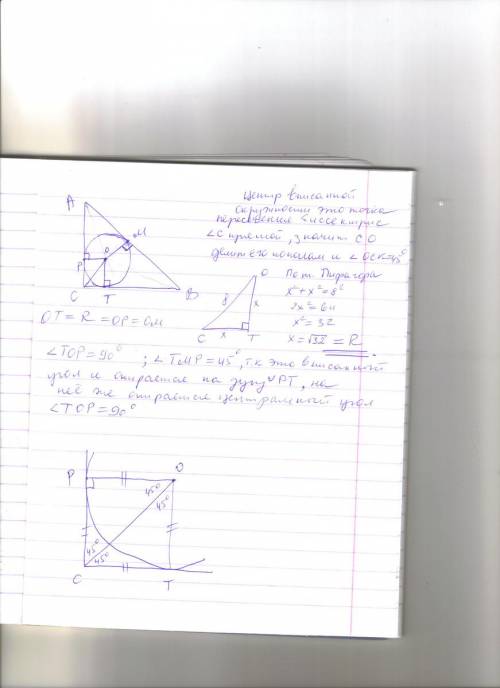 A
M
P
O
C
T
B
Центр вписанной
окружности это точка
пересечения биссектрис
∠C прямой, значит CO
делит его пополам и ∠OCK=45°
По т. Пифагора
x²+x²=8²
2x²=64
x²=32
x=√32=R
O
8
x
C
x
T
OT=R=OP=OM
∠TOP=90°; ∠TMP=45°, т.к это вписанный
угол и опирается на дугу PT, на
неё же опирается центральный угол
∠TOP=90°
P
O
45°
45°
45°
45°
C
T